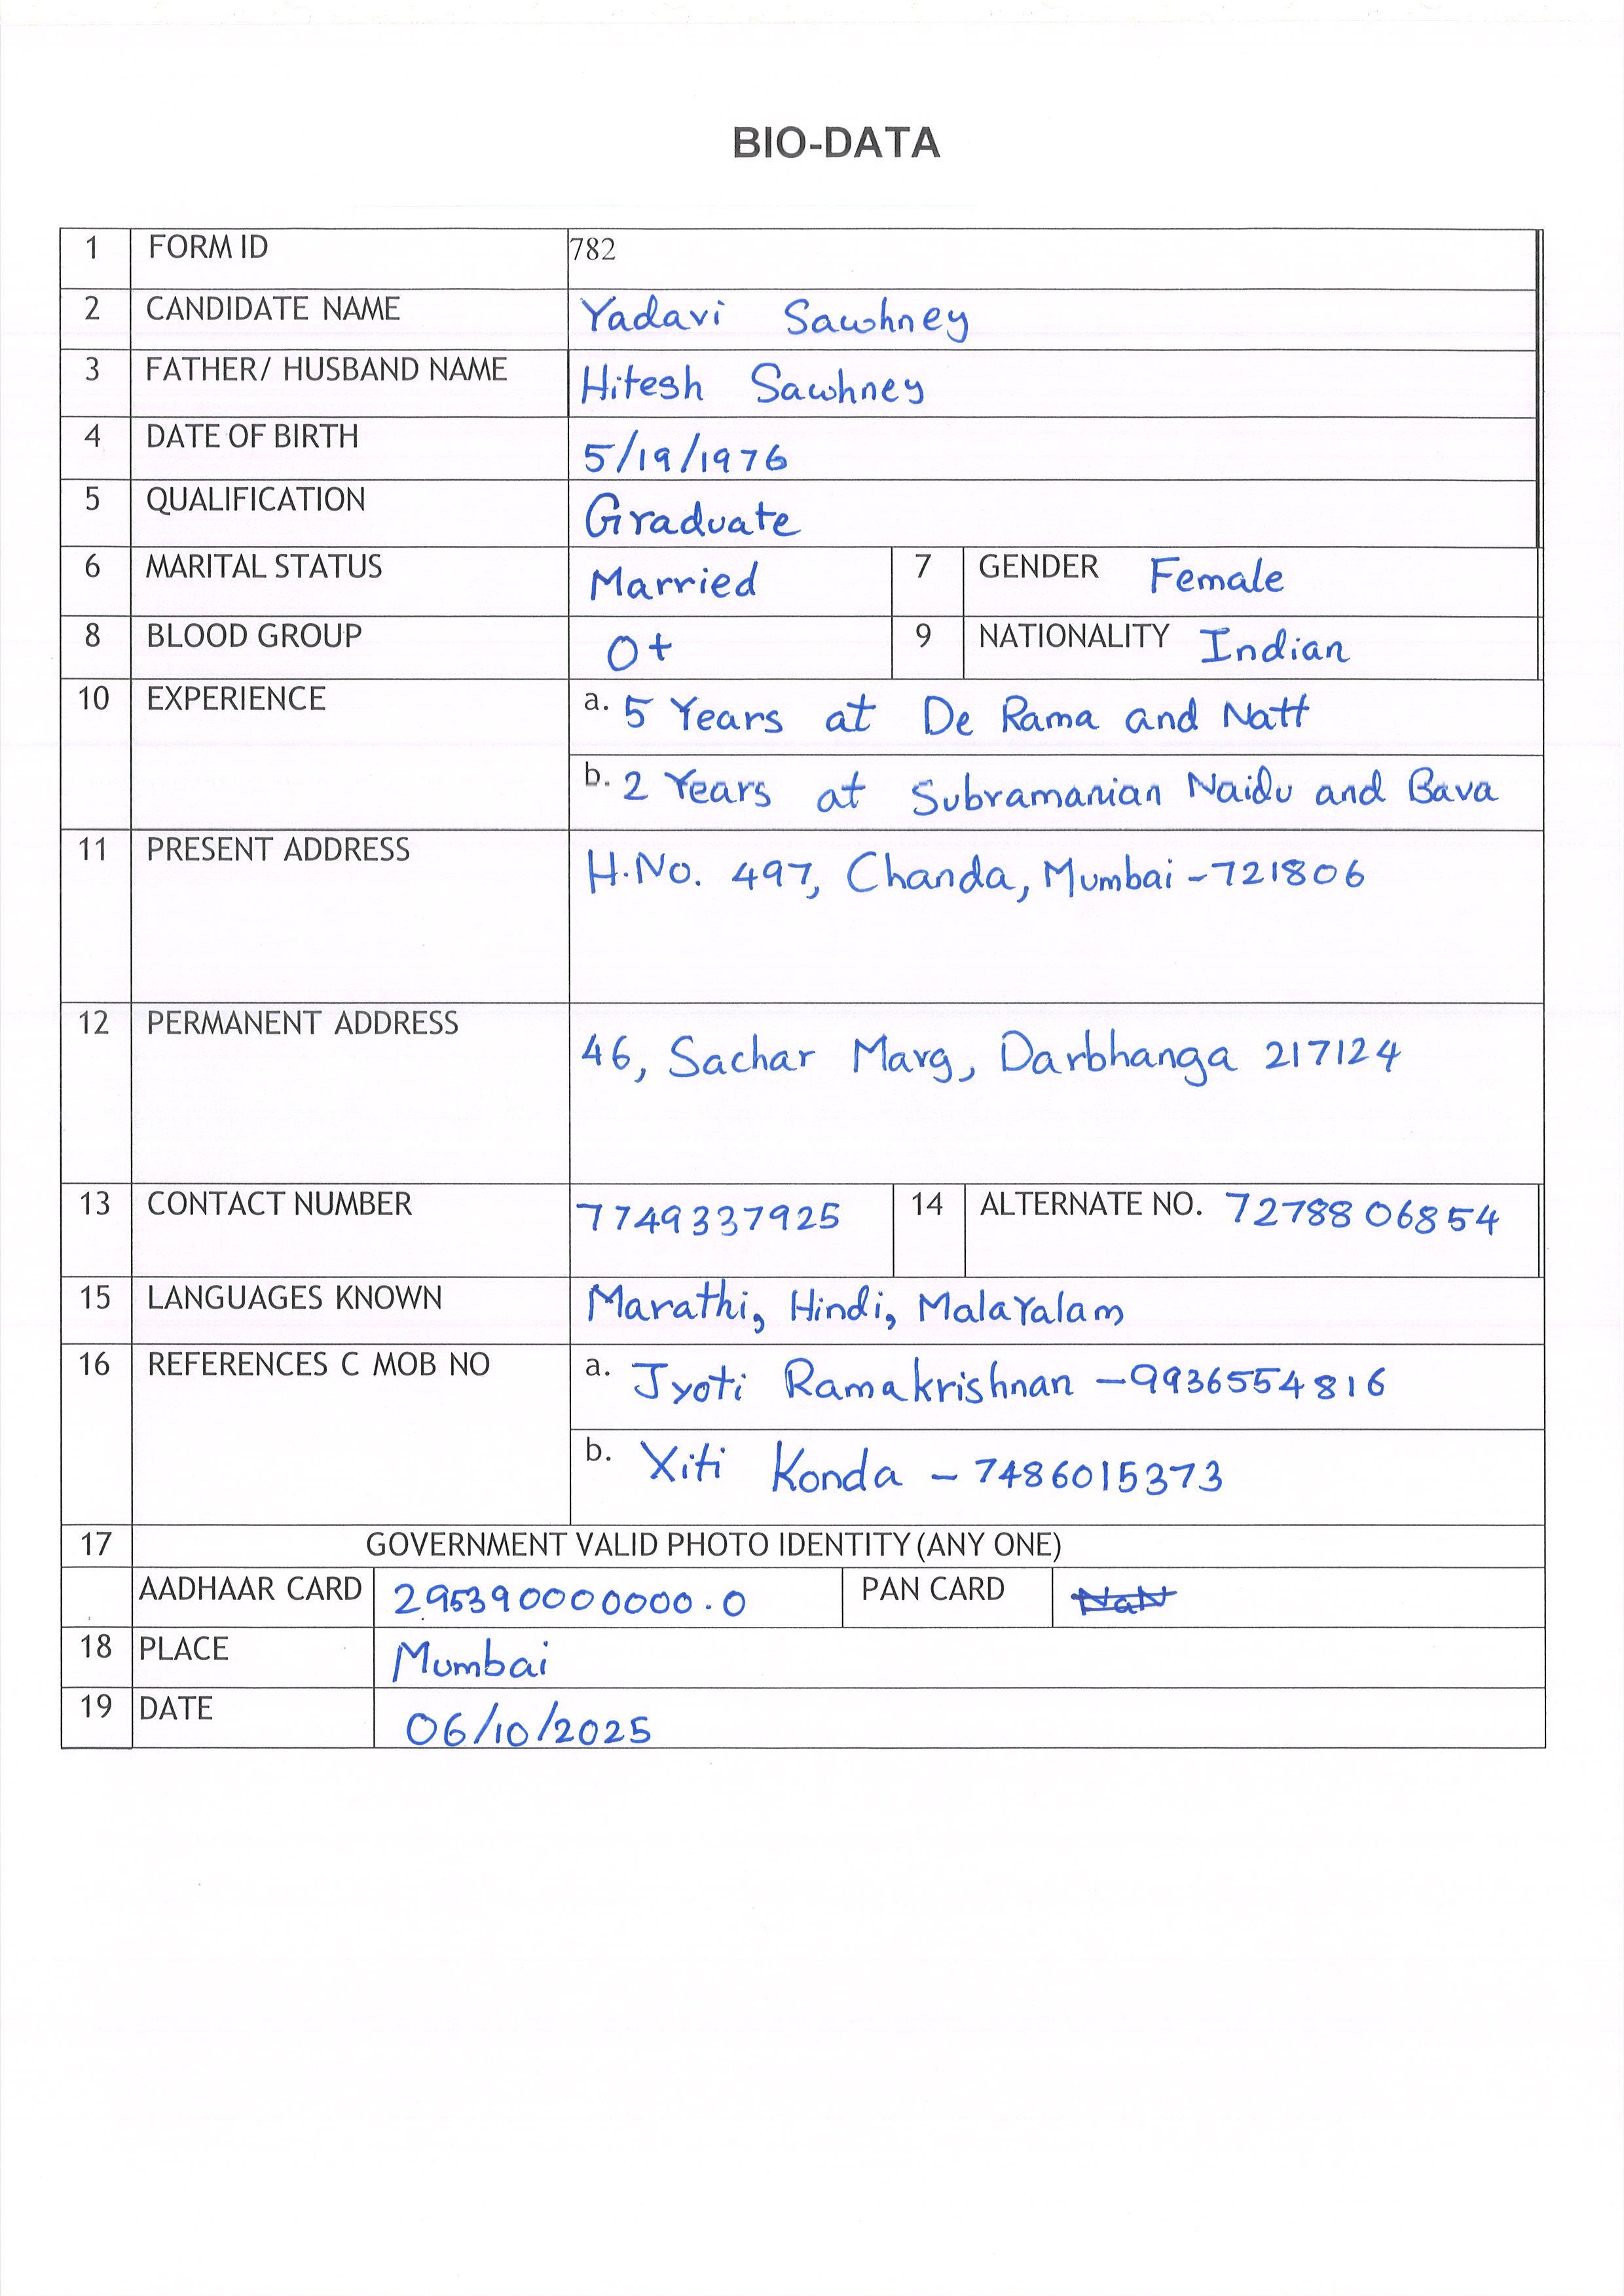 BIO-DATA
1 FORM ID 782
2 CANDIDATE NAME Yadavi Sawhney
3 FATHER/ HUSBAND NAME Hitesh Sawhney
4 DATE OF BIRTH 5/19/1976
5 QUALIFICATION Graduate
6 MARITAL STATUS Married 7 GENDER Female
8 BLOOD GROUP O+ 9 NATIONALITY Indian
10 EXPERIENCE a. 5 Years at De Rama and Natt
b. 2 Years at Subramanian Naidu and Bava
11 PRESENT ADDRESS H.No. 497, Chanda, Mumbai -721806
12 PERMANENT ADDRESS 46, Sachar Marg, Darbhanga 217124
13 CONTACT NUMBER 7749337925 14 ALTERNATE NO. 7278806854
15 LANGUAGES KNOWN Marathi, Hindi, Malayalam
16 REFERENCES C MOB NO a. Jyoti Ramakrishnan -9936554816
b. Xiti Konda - 7486015373
17 GOVERNMENT VALID PHOTO IDENTITY (ANY ONE)
AADHAAR CARD 295390000000.0 PAN CARD NaN
18 PLACE Mumbai
19 DATE 06/10/2025